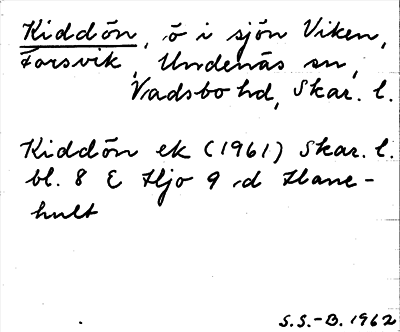 Kiddön, ö i sjön Viken,
Forsvik, Undenäs sn,
Vadsbo hd, Skar. l.
Kiddön ek (1961) Skar. l.
bl. 8 E Hjo 9 d Hane-
hult
S.S.-B. 1962